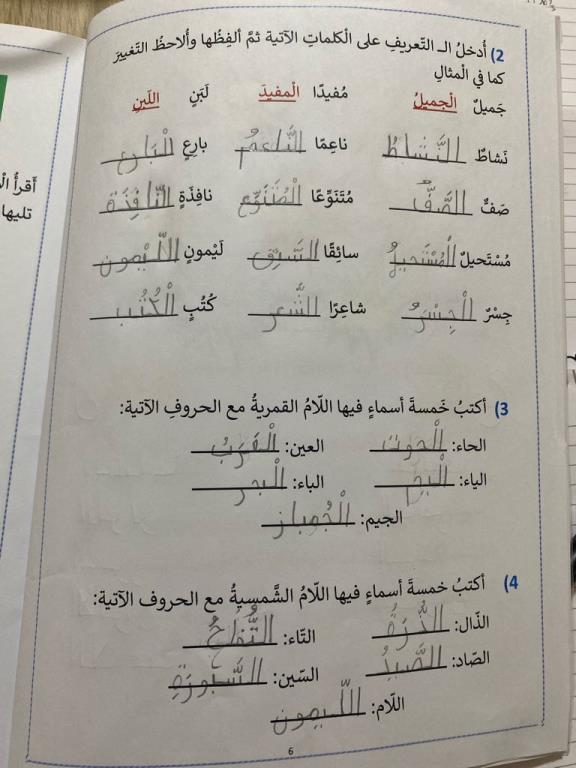 2) أُدخلُ الـ التّعريفِ على الْكلماتِ الآتية ثمَّ ألفِظُها وأُلاحظُ التّغييرَ
كما في الْمثالِ
جَميلٌ الْجميلُ مُفيدًا الْمفيدَ لَبَنٍ اللّبنِ
نَشاطٌ النَّشاطُ ناعِمًا النَّاعمُ بارِعٍ الْبَارِعِ
صَفٌّ الصَّفُّ مُتَنَوِّعًا نافِذَةٍ النَّافِذَةِ
مُسْتَحيلٌ الْمُسْتَحيلُ سائِقًا لَيْمونٍ اللَّيْمون
جِسْرٌ الْجِسْرُ شاعِرًا الشَّعر كُتُبٍ الْكُتُب
3) أكتبُ خَمسةَ أسماءٍ فيها اللّامُ القمريةُ مع الحروفِ الآتية:
الحاء: الْحوت العين:
الياء: الباء: الْبحر
الجيم: الْجُمباز
4) أكتبُ خمسةَ أسماءٍ فيها اللّامُ الشَّمسيةُ مع الحروف الآتية:
الذّال: الذُّرَةُ التّاء: التُّفاحُ
الصّاد: الصَّيدُ السّين: السَّبورَةِ
اللّام: اللَّيمون
6
أقرأُ الْ
تليها